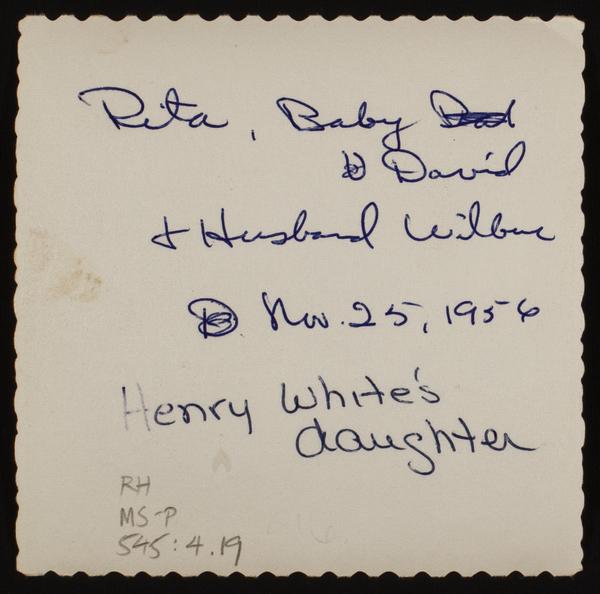 Rita, Baby
David
+ Husband Wilbur
Nov. 25, 1956
Henry White's
daughter
RH
MS-P
545:4.19